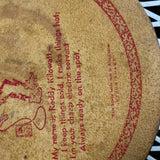 My name is Reddy Kilowatt-
I keep things cold. I make things hot.
I'm your cheap electric servant
Always ready on the spot.